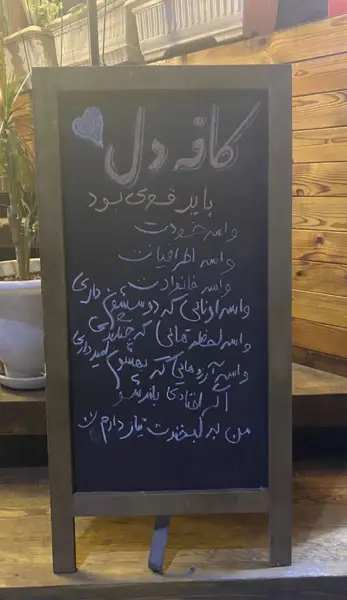 کافه دل
باید قوی بود
واسه خودت
واسه اطرافیات
واسه خانوادت
واسه اونائی که دوسشون داری
واسه لحظه هائی که
واسه آرزوهایی که بهشون امیدواری
اگر افتادی بلند شو
من به لبخندت نیاز دارم :)